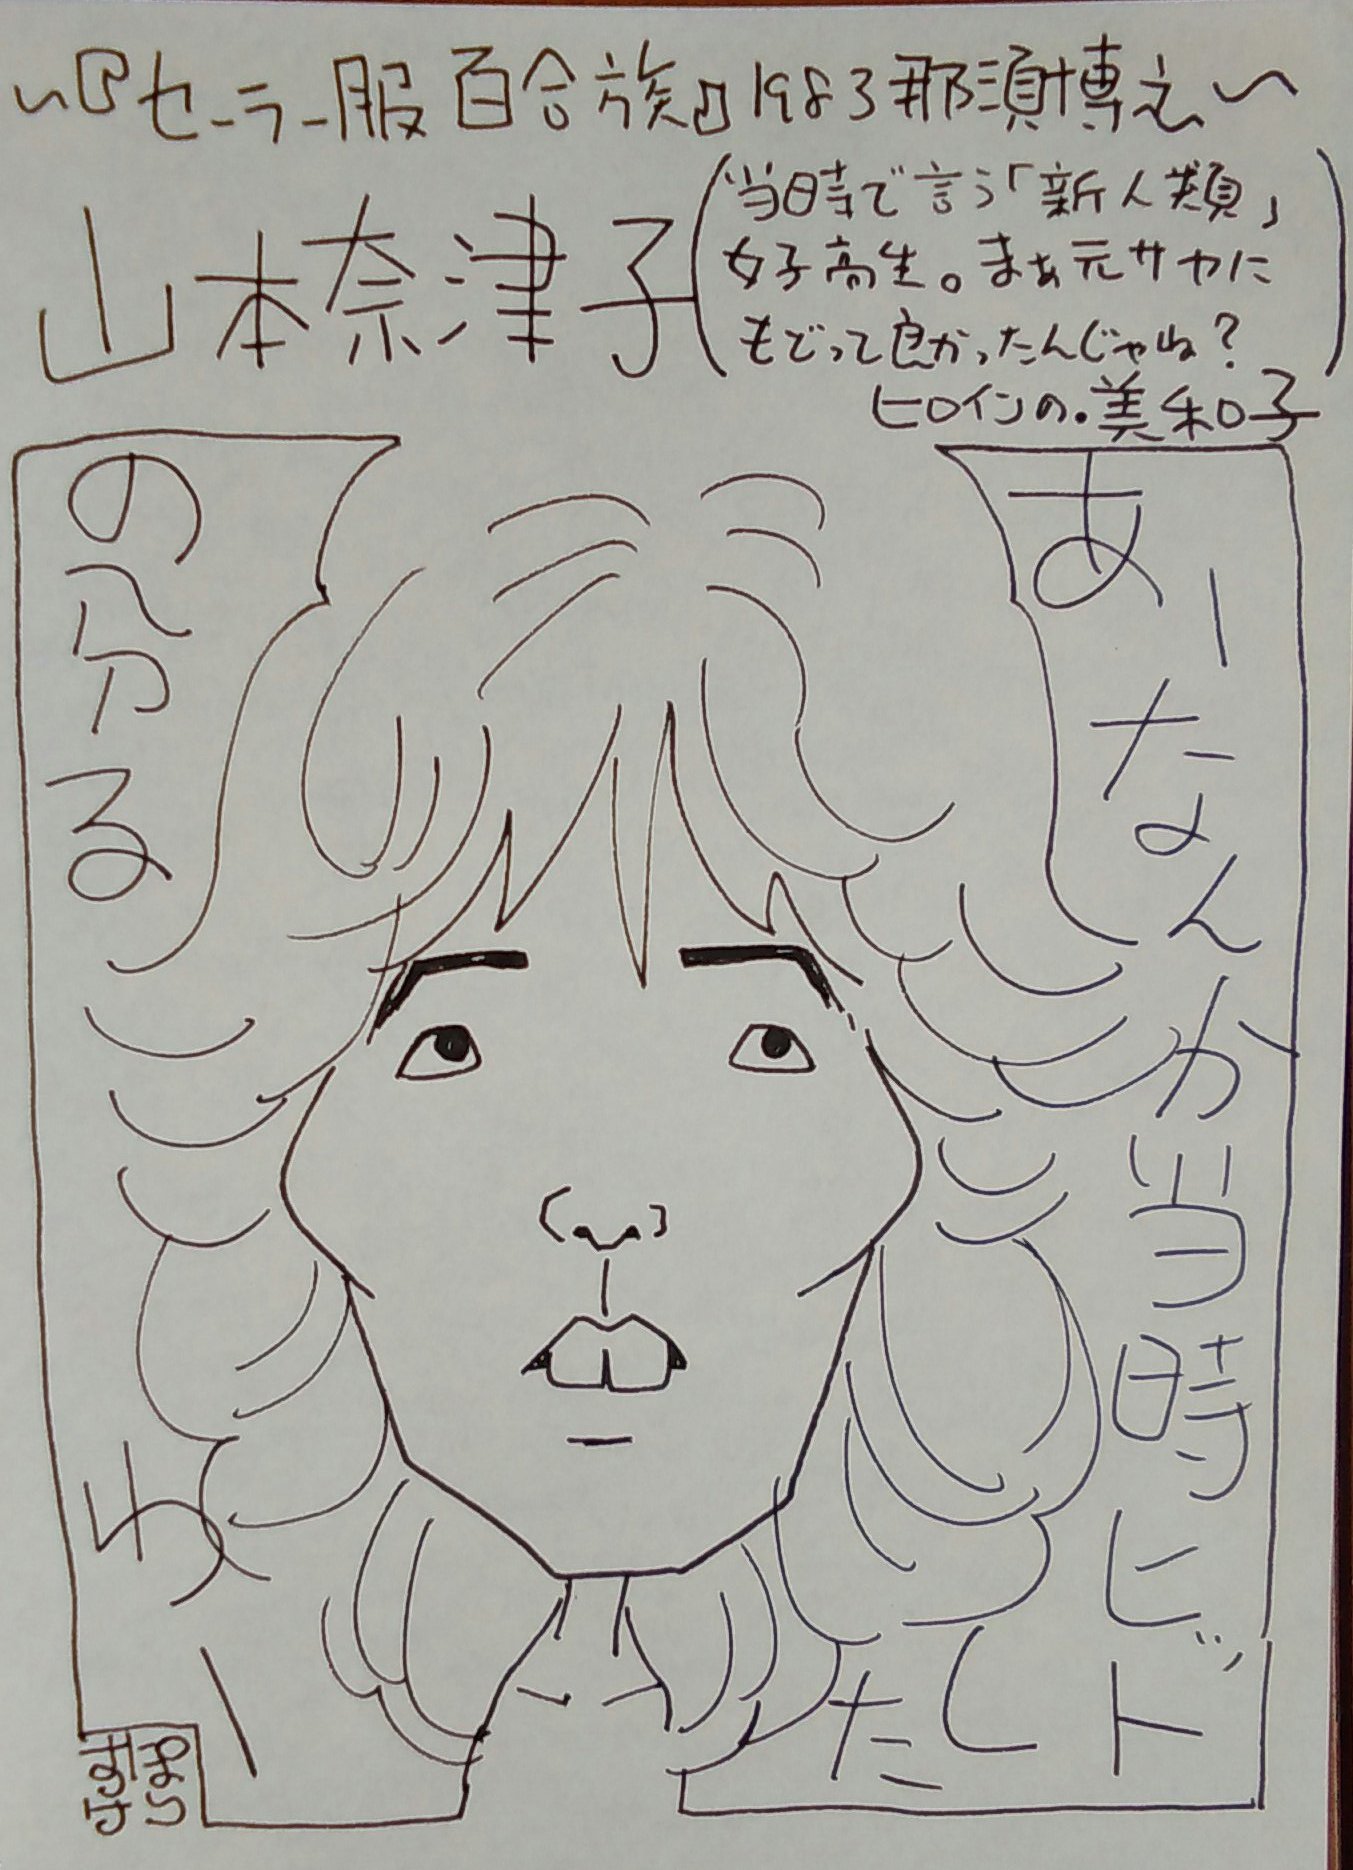 ～『セーラー服百合族』1983那須博之～
山本奈津子
(当時で言う「新人類」
女子高生。まぁ元サヤに
もどって良かったんじゃね?)
ヒロインの・美和子
あーなんか当時ヒット
したの分かる
わー